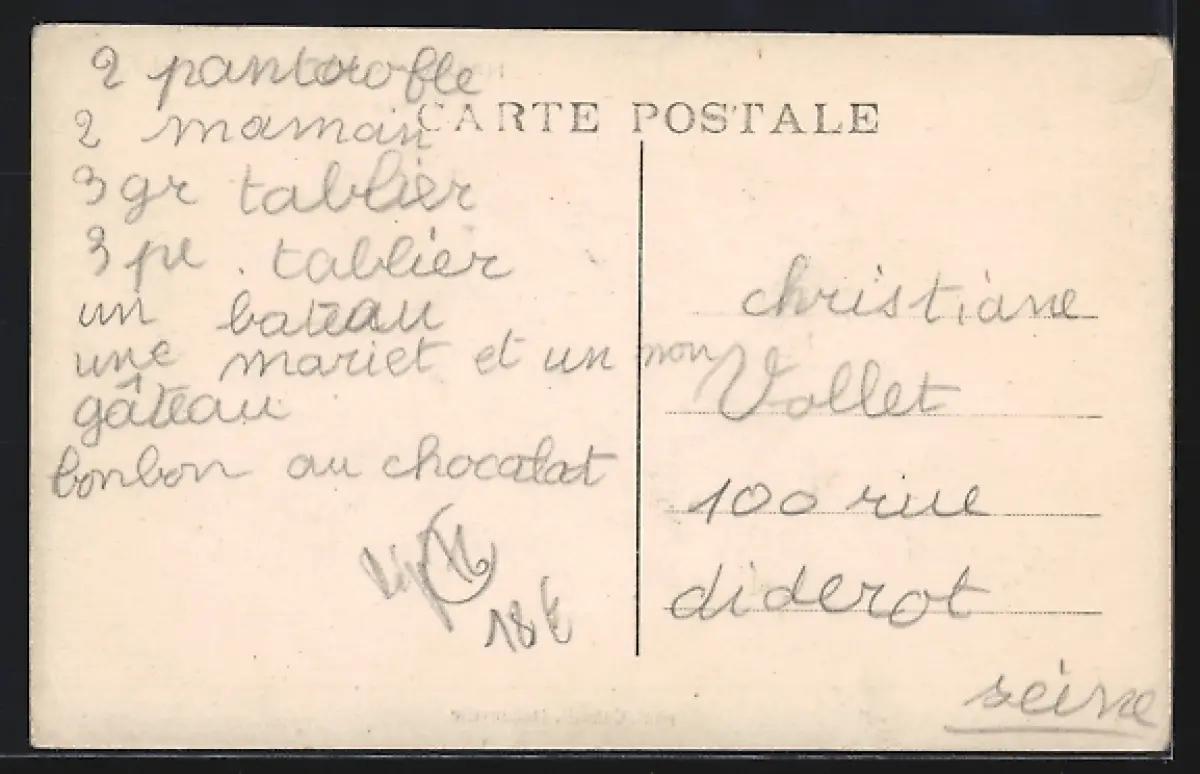 CARTE POSTALE
2 pantoofle
2 maman
3 gr tablier
3 pe. tablier
un bateau
une mariet et un non
gâteau
bonbon au chocalat
18 €
christiane
Vollet
100 rue
diderot
seine